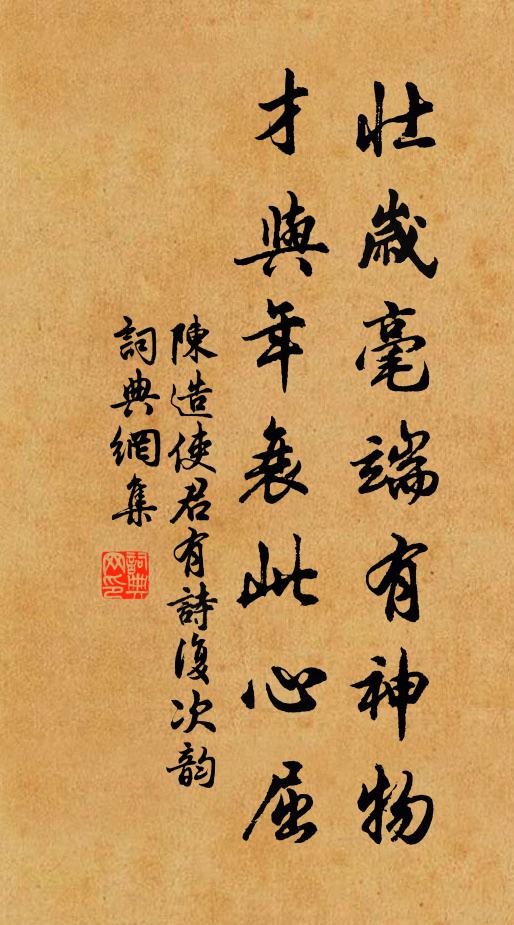 壯歲毫端有神物
才與年衰此心屈
陳造使君有詩復次韵
詞典網集
詞典网印